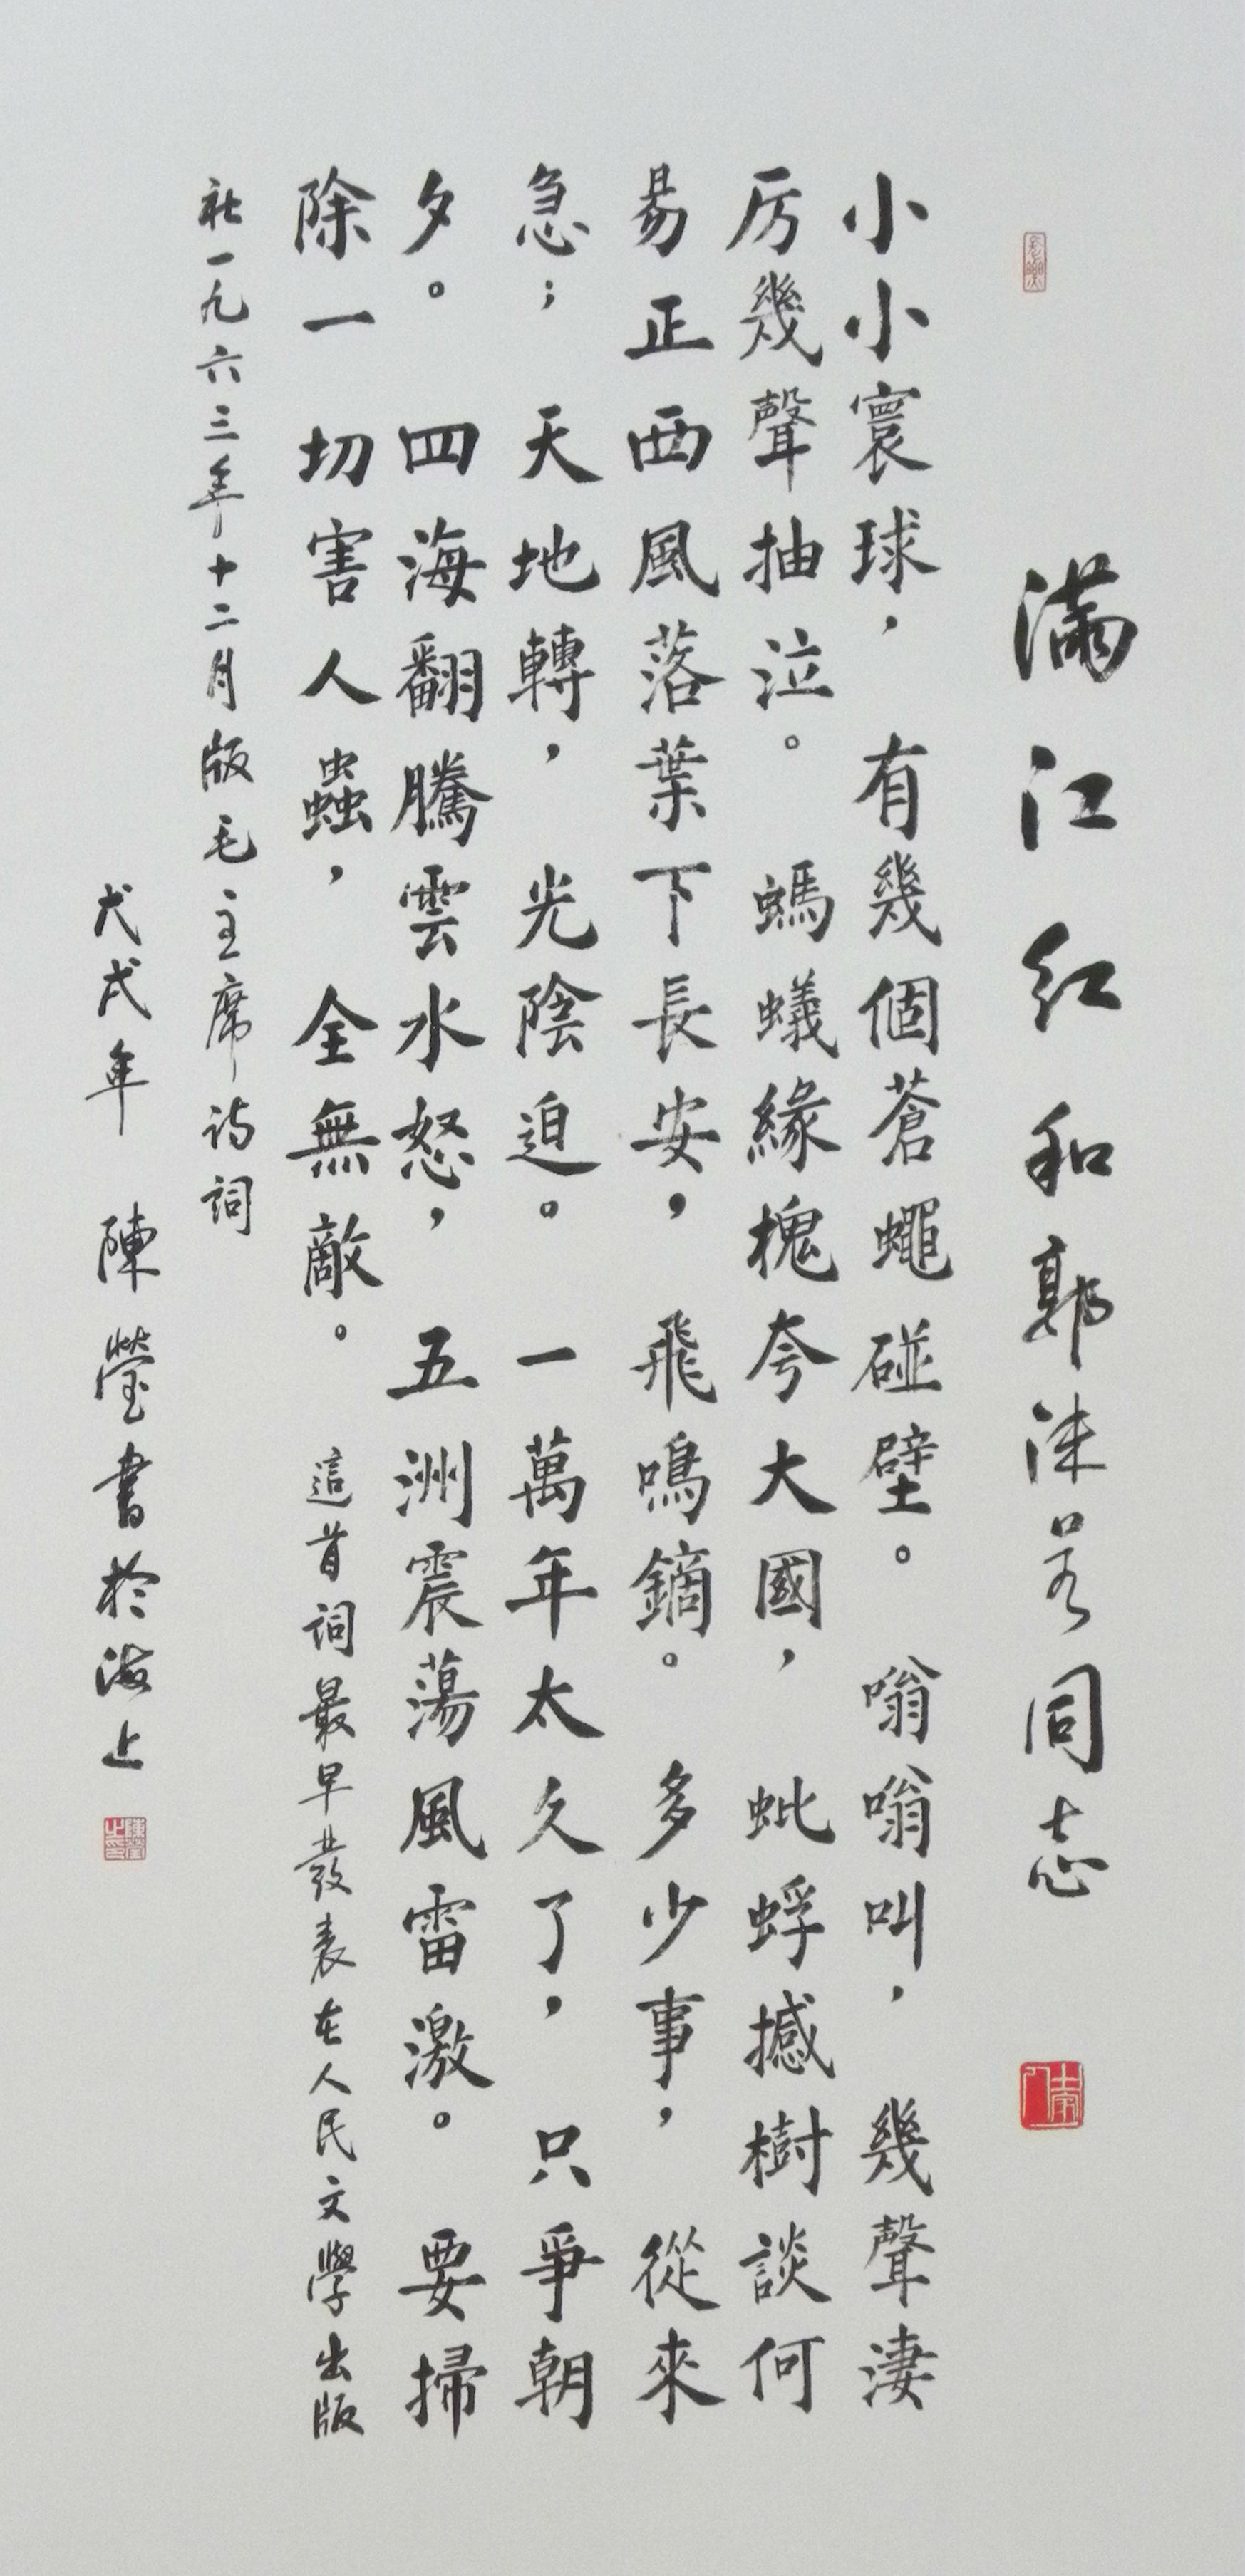 滿江红和郭沫若同志
小小寰球，有幾個蒼蠅碰壁。嗡嗡叫，幾聲淒
厉幾聲抽泣。螞蟻緣槐夸大國，蚍蜉撼樹談何
易正西風落葉下長安，飛鳴鏑。多少事，從來
急；天地轉，光陰迫。一萬年太久了，只爭朝
夕。四海翻騰雲水怒，五洲震蕩風雷激。要掃
除一切害人蟲，全無敵。這首詞最早發表在人民文學出版
社一九六三年十二月版毛主席诗詞
戊戌年 陳瑩書於海上
陳瑩之印